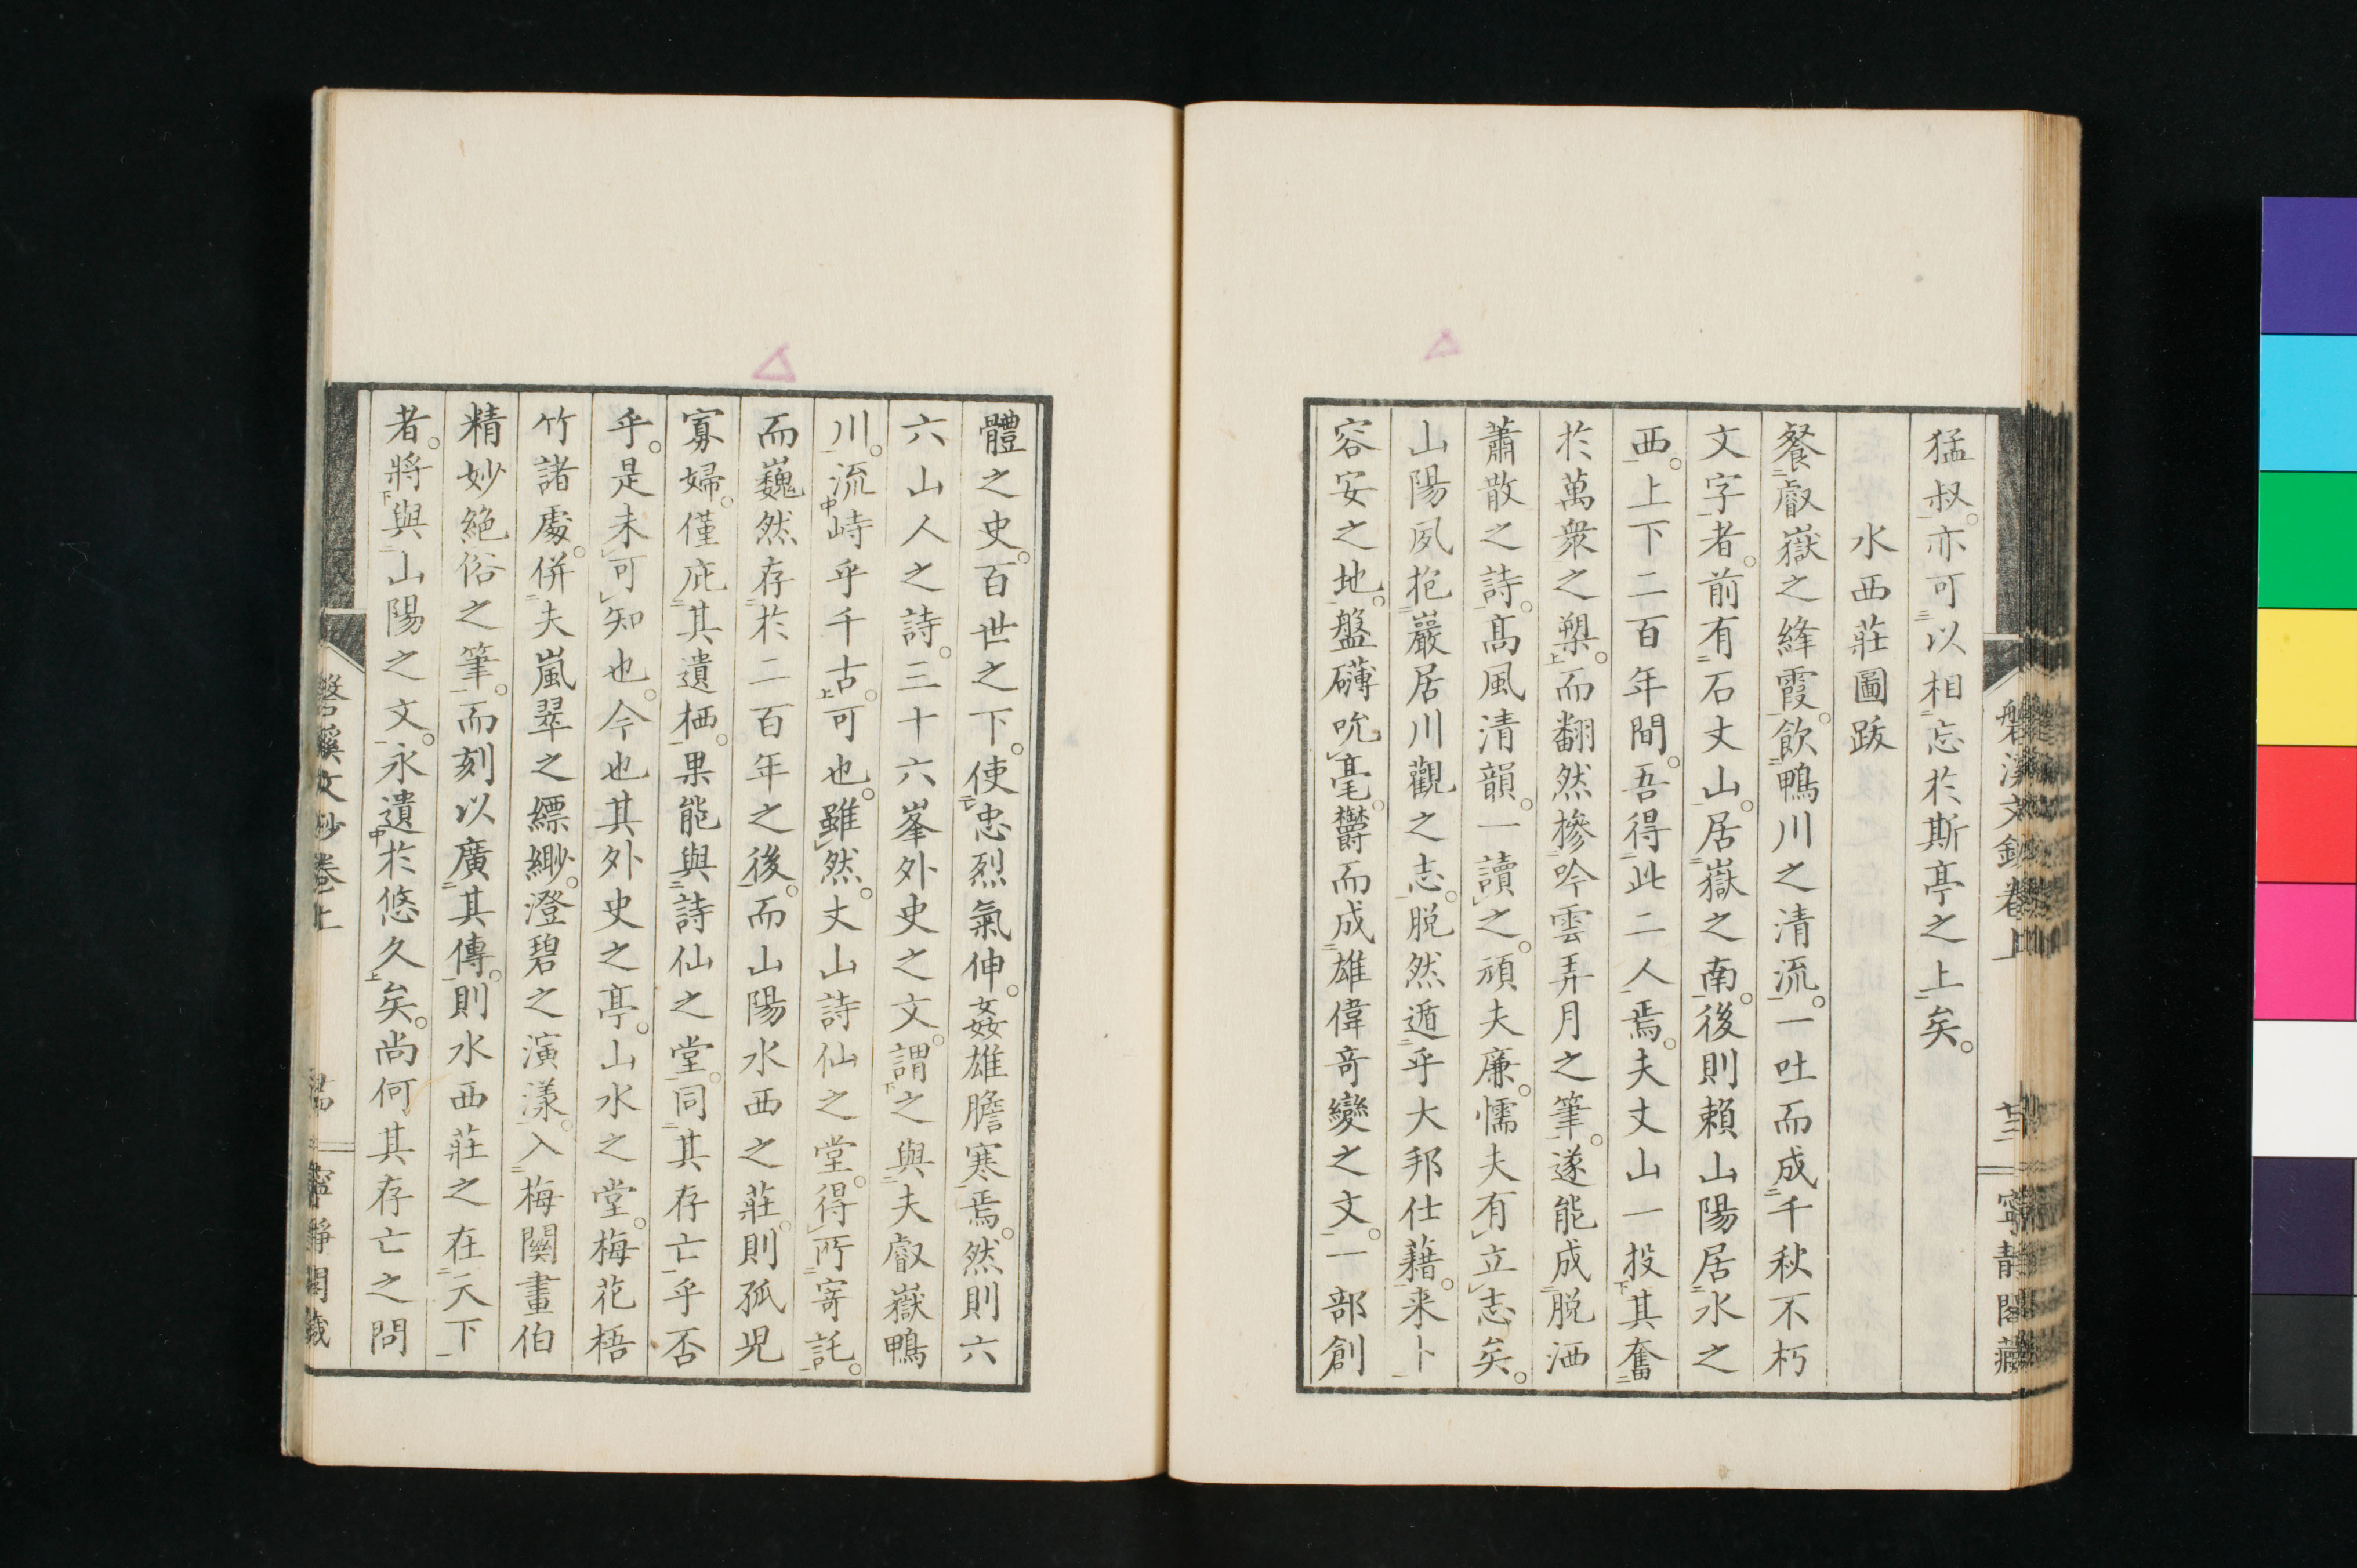 猛叔。亦可以相忘於斯亭之上矣。
水西莊圖跋
餐叡嶽之絳霞。飲鴨川之清流。一吐而成千秋不朽
文字者。前有石丈山。居嶽之南。後則賴山陽居水之
西。上下二百年間。吾得此二人焉。夫丈山一投其奮
於萬衆之槊。而翻然摻吟雲弄月之筆。遂能成脱洒
蕭散之詩。高風清韻。一讀之。頑夫廉。懦夫有立志矣。
山陽夙抱巖居川觀之志。脱然遁乎大邦仕藉。来卜
容安之地。盤礴吮毫。欝而成雄偉奇變之文。一部創
體之史。百世之下。使忠烈氣伸。姦雄膽寒焉。然則六
六山人之詩。三十六峯外史之文。謂之與夫叡嶽鴨
川。流峙乎千古。可也。雖然。丈山詩仙之堂。得所寄託。
而巍然存於二百年之後。而山陽水西之莊。則孤児
寡婦。僅庇其遺栖。果能與詩仙之堂。同其存亡乎否
乎。是未可知也。今也其外史之亭。山水之堂。梅花梧
竹諸處。併夫嵐翠之縹緲。澄碧之演漾。入梅關畫伯
精妙絶俗之筆。而刻以廣其傳。則水西莊之在天下
者。將與山陽之文。永遺於悠久矣。尚何其存亡之問
磐溪文鈔卷上
寧靜閣藏
磐溪文鈔卷上
寧靜閣藏